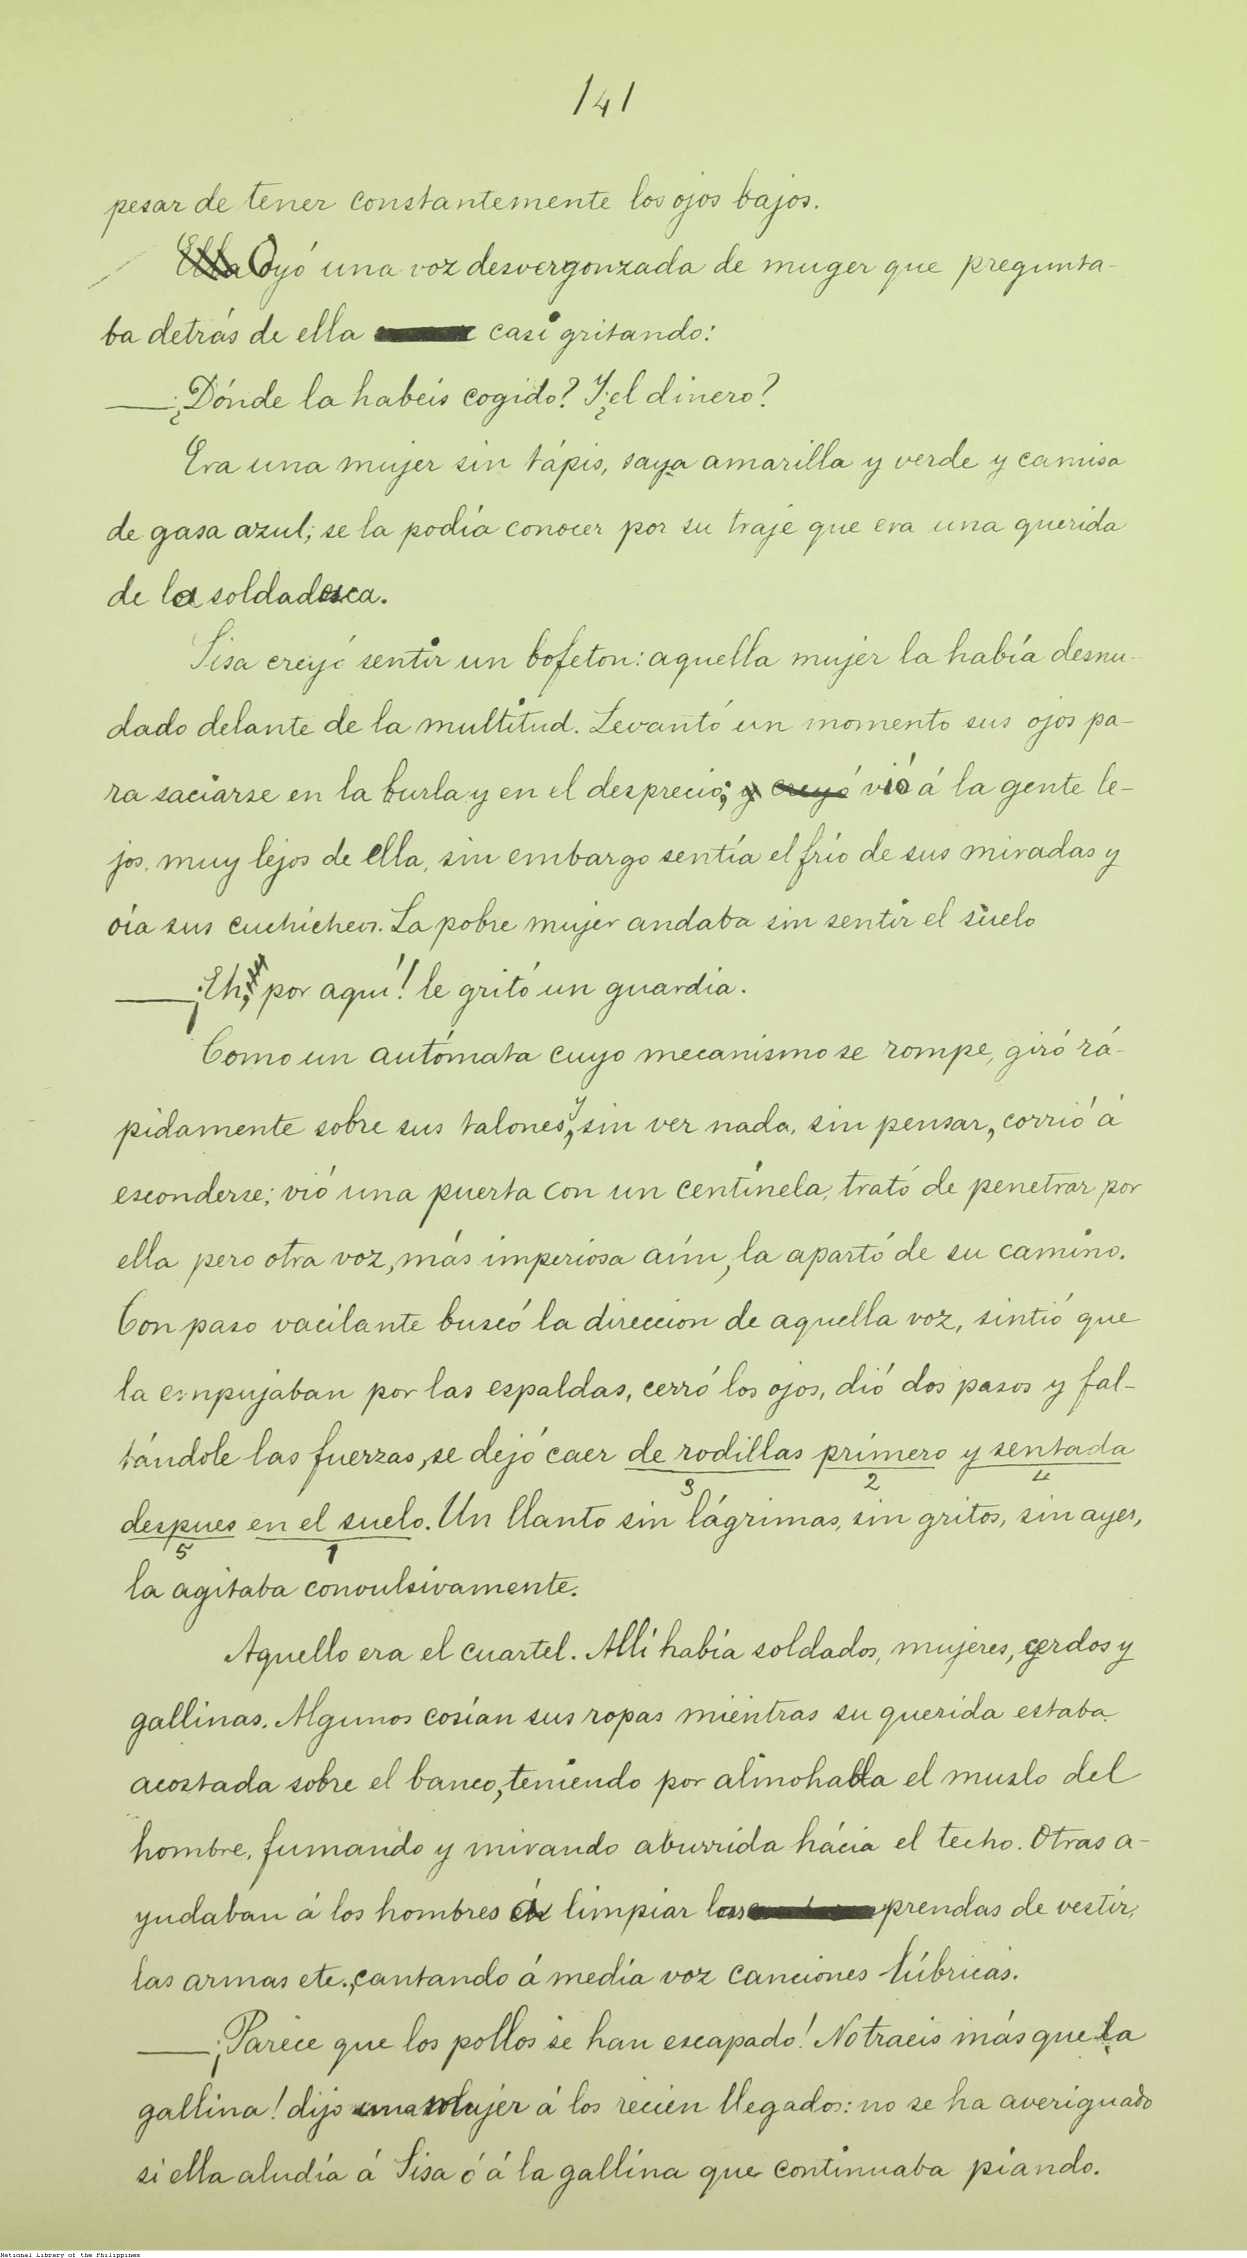 141
pesar de tener constantemente los ojos bajos.
Ella Oyó una voz desvergonzada de muger que pregunta-
ba detrás de ella casi gritando:
—¿Dónde la habeis cogido? Y ¿el dinero?
Era una mujer sin tápis, saya amarilla y verde y camisa
de gasa azul; se la podía conocer por su traje que era una querida
de la soldadesca.
Sisa creyó sentir un bofeton: aquella mujer la había desnu-
dado delante de la multitud. Levantó un momento sus ojos pa-
ra saciarse en la burla y en el desprecio; y creyó vió á la gente le-
jos, muy lejos de ella, sin embargo sentía el frío de sus miradas y
oía sus cuchicheos. La pobre mujer andaba sin sentir el suelo
—¡Eh, por aquí! le gritó un guardia.
Como un autómata cuyo mecanismo se rompe, giró rá-
pidamente sobre sus talones, y sin ver nada, sin pensar, corrió á
esconderse; vió una puerta con un centinela, trató de penetrar por
ella pero otra voz, más imperiosa aún, la apartó de su camino.
Con paso vacilante buscó la direccion de aquella voz, sintió que
la empujaban por las espaldas, cerró los ojos, dió dos pasos y fal-
tándole las fuerzas, se dejó caer de rodillas primero y sentada
3 2 4
despues en el suelo. Un llanto sin lágrimas, sin gritos, sin ayes,
5 1
la agitaba convulsivamente.
Aquello era el cuartel. Allí había soldados, mujeres, cerdos y
gallinas. Algunos cosían sus ropas mientras su querida estaba
acostada sobre el banco, teniendo por almohada el muslo del
hombre, fumando y mirando aburrida hácia el techo. Otras a-
yudaban á los hombres á limpiar las prendas de vestir,
las armas etc., cantando á media voz canciones lúbricas.
—¡Parece que los pollos se han escapado! No traeis más que la
gallina! dijo una mujer á los recien llegados: no se ha averiguado
si ella aludía á Sisa ó á la gallina que continuaba piando.
National Library of the Philippines